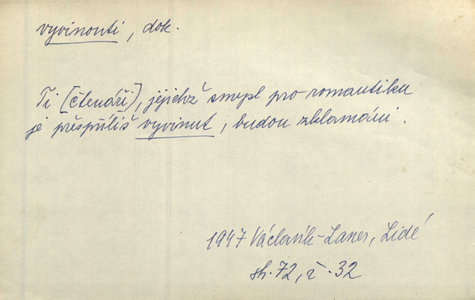 vyvinouti, dok.
Ti [čtenáři], jejichž smysl pro romantiku
je přespříliš vyvinut, budou zklamáni.
1947 Václavík-Laner, Lidé
sh. 72, ř. 32